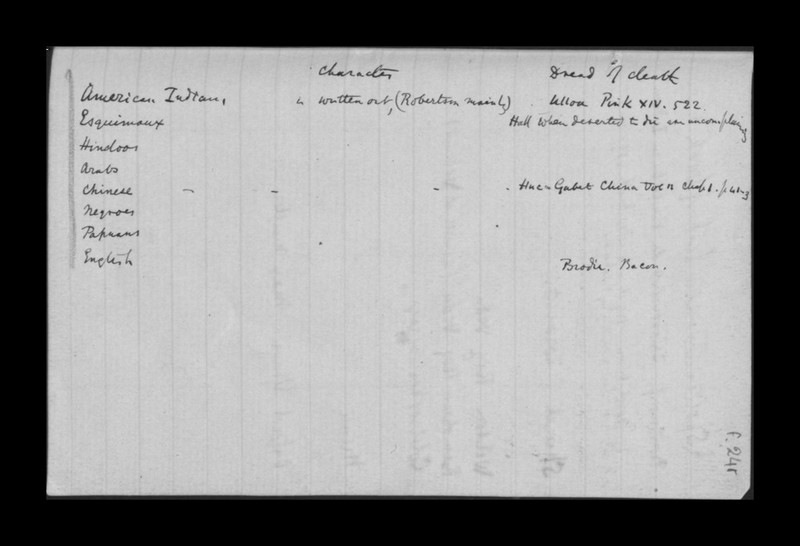 Character Dread of death
American Indians is written out, (Robertson mainly) . Ulloa Pink XIV. 522.
Esquimaux Hall when deserted to die an uncomplaining
Hindoos
Arabs
Chinese - - - . Huc & Gabet China Vol II Chap 1.
Negroes
Papuans
English Brodie. Bacon.
f. 245